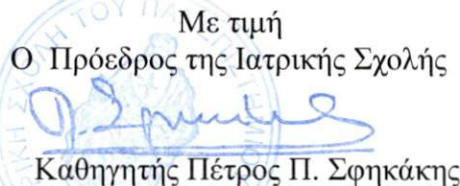 Με τιμή
Ο Πρόεδρος της Ιατρικής Σχολής
Καθηγητής Πέτρος Π. Σφηκάκης